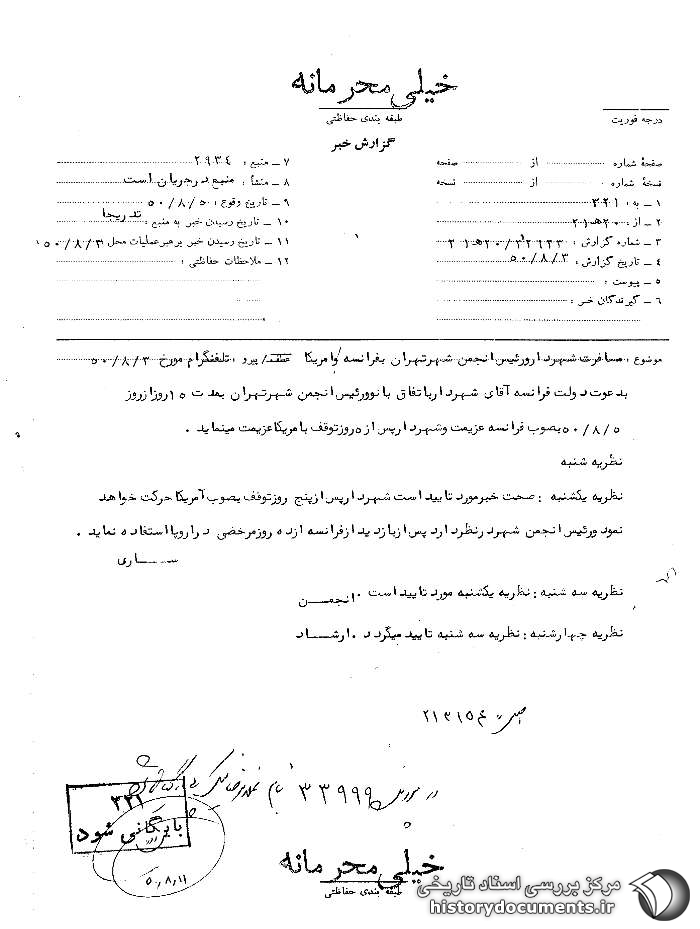 خیلی محرمانه
طبقه بندی حفاظتی
درجه فوریت
گزارش خبر
صفحهٔ شماره از صفحه
نسخهٔ شماره از نسخه
۱ ـ به : ۳۲۱
۲ ـ از : ۲۰هـ۲۱
۳ ـ شماره گزارش :
۴ ـ تاریخ گزارش : ۵۰/۸/۳
۵ ـ پیوست :
۶ ـ گیرندگان خبر :
۷ ـ منبع : ۲۹۳۴
۸ ـ منشأ : منبع در جریان است
۹ ـ تاریخ وقوع : ۵۰/۸/۵
۱۰ ـ تاریخ رسیدن خبر به منبع : تدریجا
۱۱ ـ تاریخ رسیدن خبر برهبر عملیات محل : ۵۰/۸/۳
۱۲ ـ ملاحظات حفاظتی :
موضوع : مسافرت شهردار ورئیس انجمن شهرتهران بفرانسه وامریکا عطف / پیرو : تلفنگرام مورخ ۵۰/۸/۳
بدعوت دولت فرانسه آقای شهردار باتفاق بانو ورئیس انجمن شهرتهران بمدت ۱۵ روز از روز
۵۰/۸/۵ بصوب فرانسه عزیمت وشهردارپس از ۵ روز توقف بامریکاعزیمت مینماید .
نظریه شنبه
نظریه یکشنبه : صحت خبرمورد تایید است شهردارپس از پنج روز توقف بصوب آمریکا حرکت خواهد
نمود ورئیس انجمن شهر در نظر دارد پس از بازدید از فرانسه از ده روز مرخصی در اروپا استفاده نماید .
ســـاری
نظریه سه شنبه : نظریه یکشنبه مورد تایید است . انجمـــن
نظریه چهارشنبه : نظریه سه شنبه تایید میگردد . ارشـــاد
۲۱۳۱۵
در ۳۳۹۹۹ بنام
۳۲۱
بایگانی شود
۵۰/۸/۱۱
خیلی محرمانه
طبقه بندی حفاظتی
مرکز بررسی اسناد تاریخی
historydocuments.ir